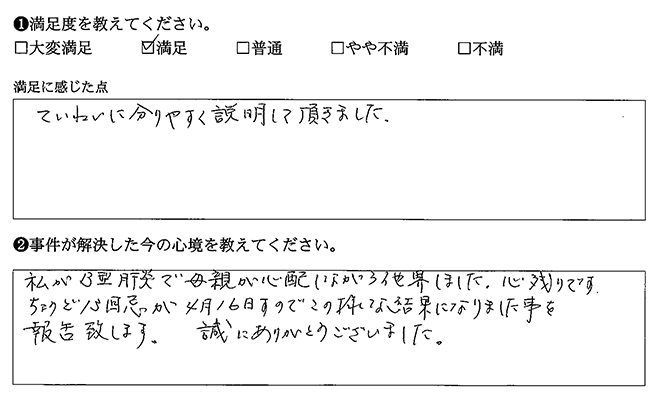 ❶満足度を教えてください。
□大変満足 ☑満足 □普通 □やや不満 □不満
満足に感じた点
ていねいに分りやすく説明して頂きました。
❷事件が解決した今の心境を教えてください。
私がB型肝炎で母親が心配しながら他界しました。心残りです。
ちょうど13回忌が4月16日すのでこの様な結果になりました事を
報告致します。 誠にありがとうございました。